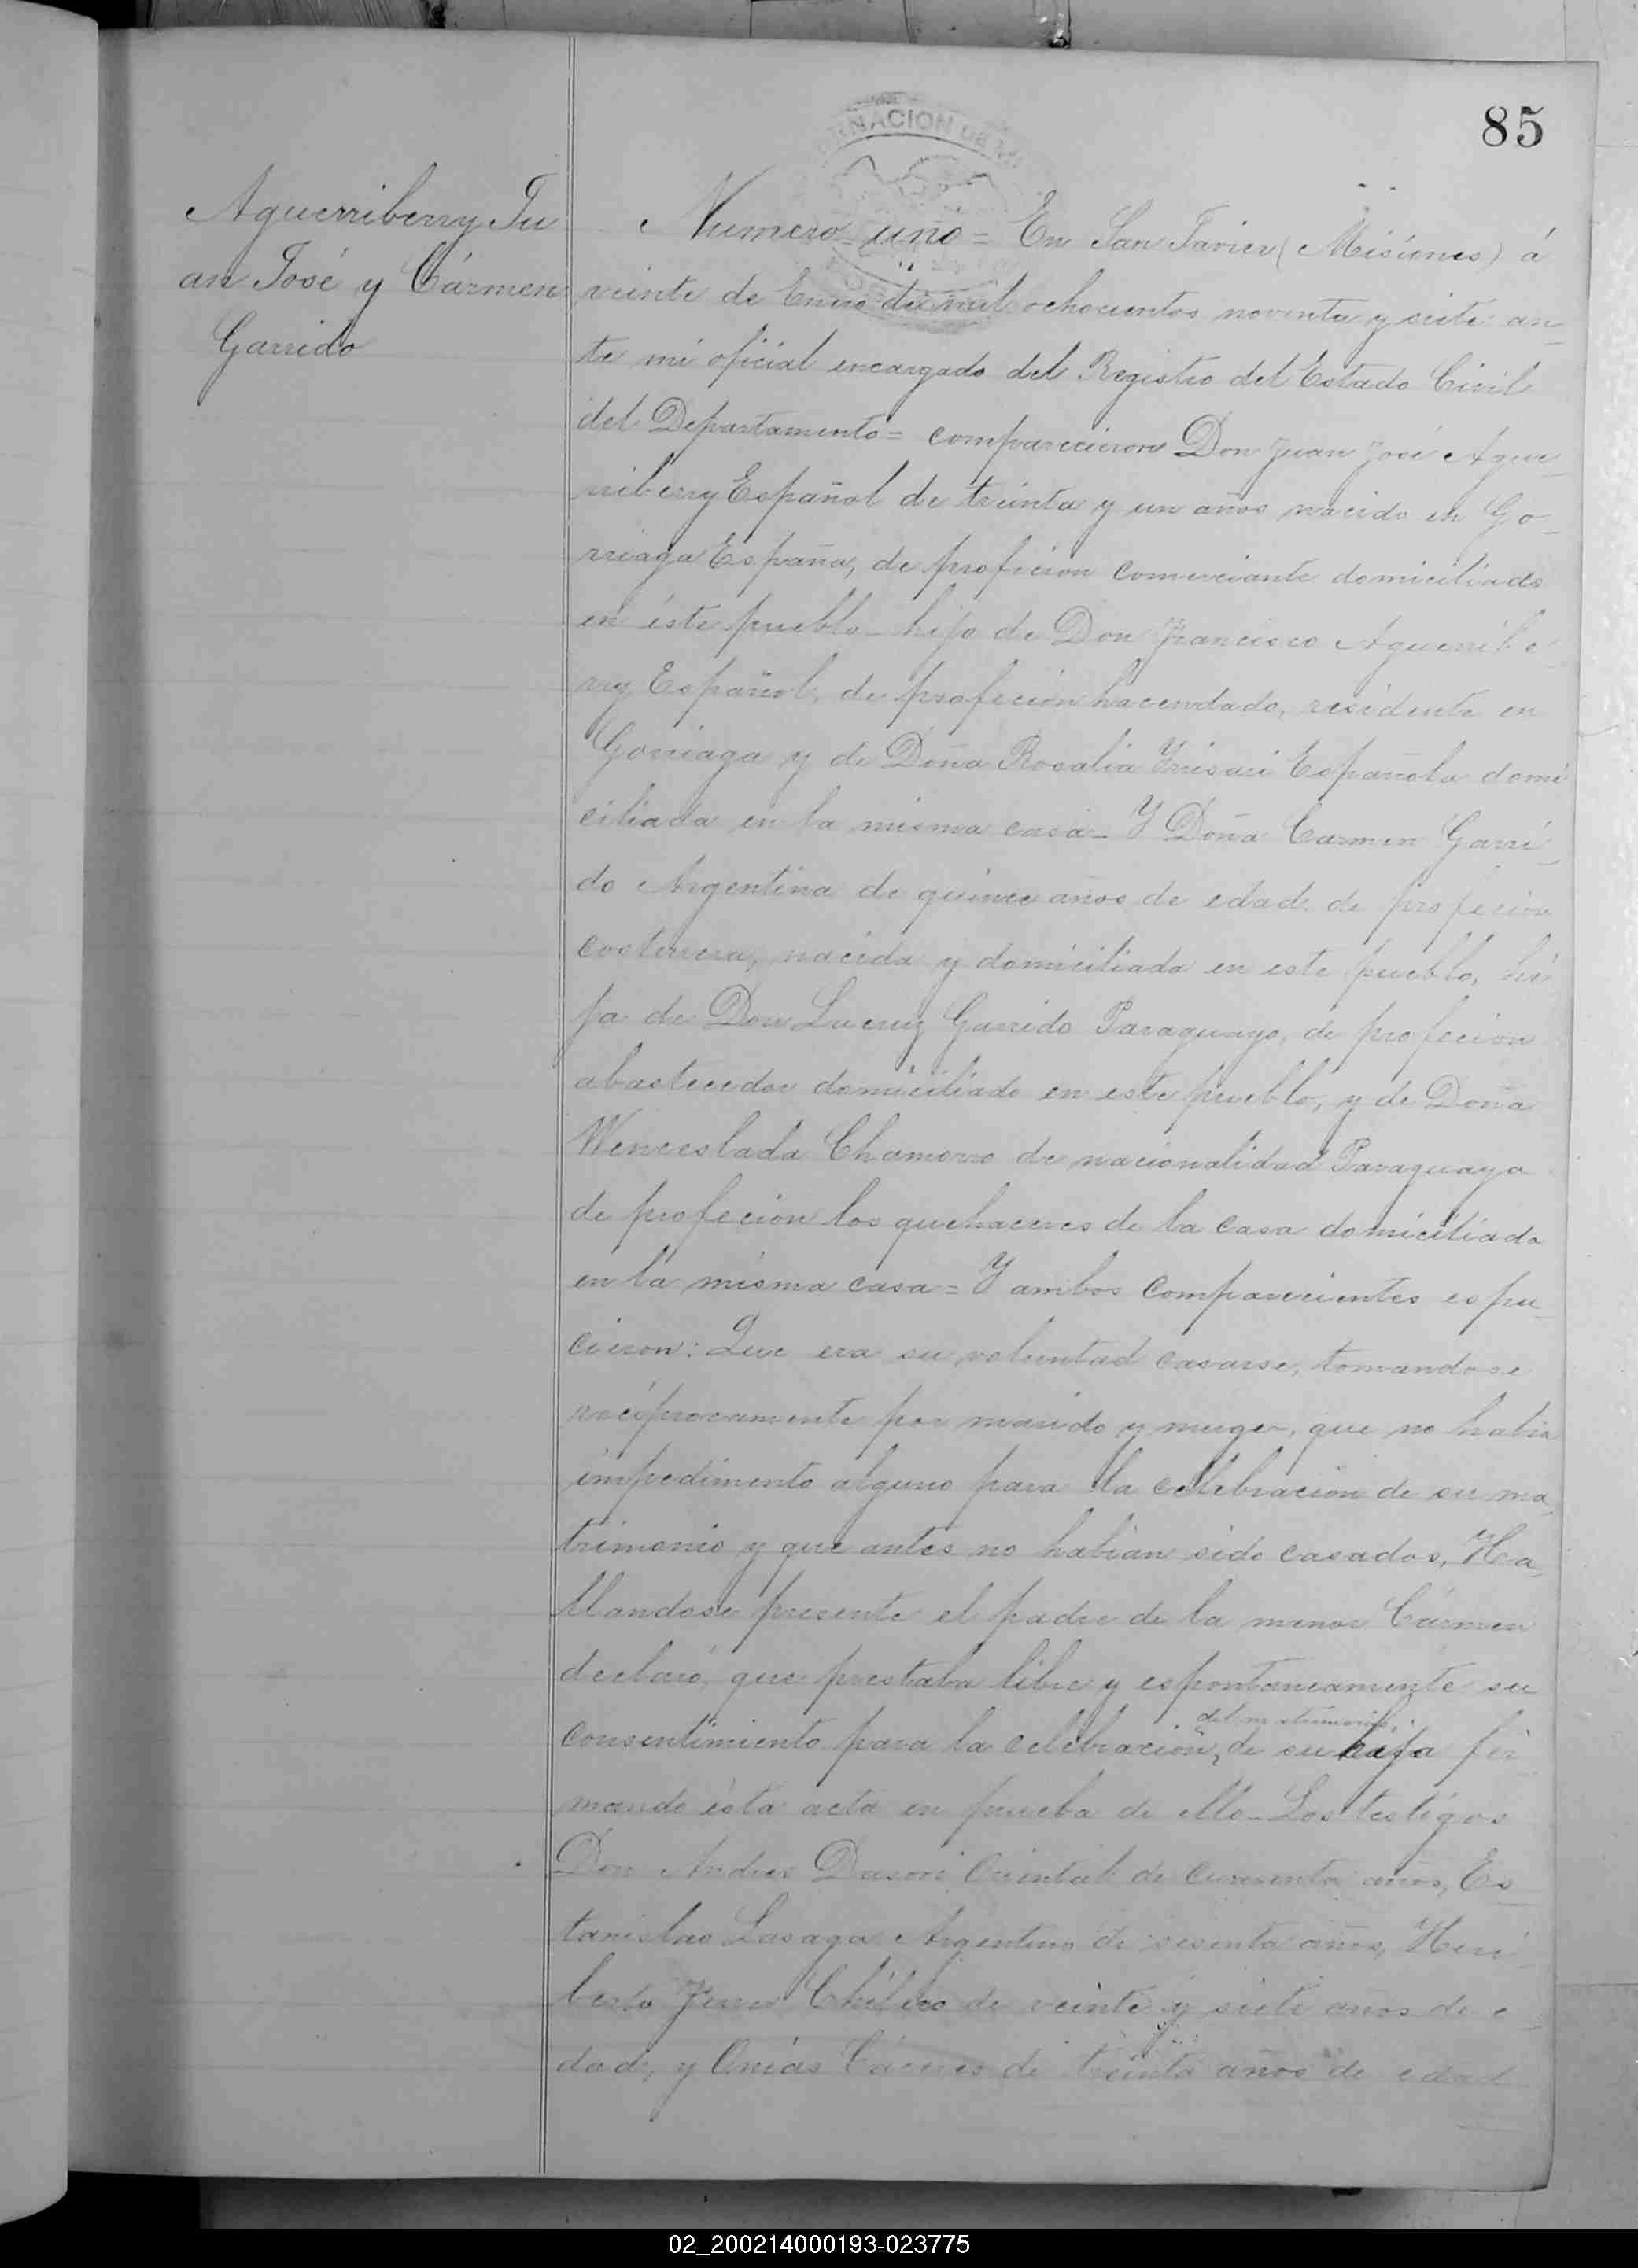 85
RNACION DE MI
Aguerriberry Ju
an José y Cármen
Garrido
Numero uno = En San Javier (Misiones) á
veinte de Enero de mil ochocientos noventa y siete an_
te mi oficial encargado del Registro del Estado Civil
del Departamento = comparecieron Don Juan José Ague_
rriberry Español de treinta y un años nacido en Go_
rriaga España, de profecion comerciante domiciliado
en éste pueblo_ hijo de Don Francisco Aguerribe
rry Español, de profecion hacendado, residente en
Gorriaga y de Doña Rosalia Yrisari Española domi
ciliada en la misma casa_ Y Doña Carmen Garri_
do Argentina de quince años de edad de profecion
costurera, nacida y domiciliada en este pueblo, hi
ja de Don Lacruz Garrido Paraguayo, de profecion
abastecedor domiciliado en este pueblo, y de Doña
Wenceslada Chamorro de nacionalidad Paraguaya
de profecion los quehaceres de la casa domiciliada
en la misma casa = Y ambos comparecientes espu_
cieron: Que era su voluntad casarse, tomandose
reciprocamente por marido y muger, que no habia
impedimento alguno para la celebracion de su ma_
trimonio y que antes no habian sido casados. Ha_
llandose presente el padre de la menor Cármen
declaró, que prestaba libre y espontaneamente su
del matrimonio
consentimiento para la celebracion, de su hija fir
mando ésta acta en prueba de ello_ Los testigos
Don Andres Dasori Oriental de cuarenta años, Es_
tanislao Lasaga Argentino de sesenta años, Heri_
berto Chileno de veinte y siete años de e_
dad, y Onias Cáceres de treinta años de edad
02_200214000193-023775